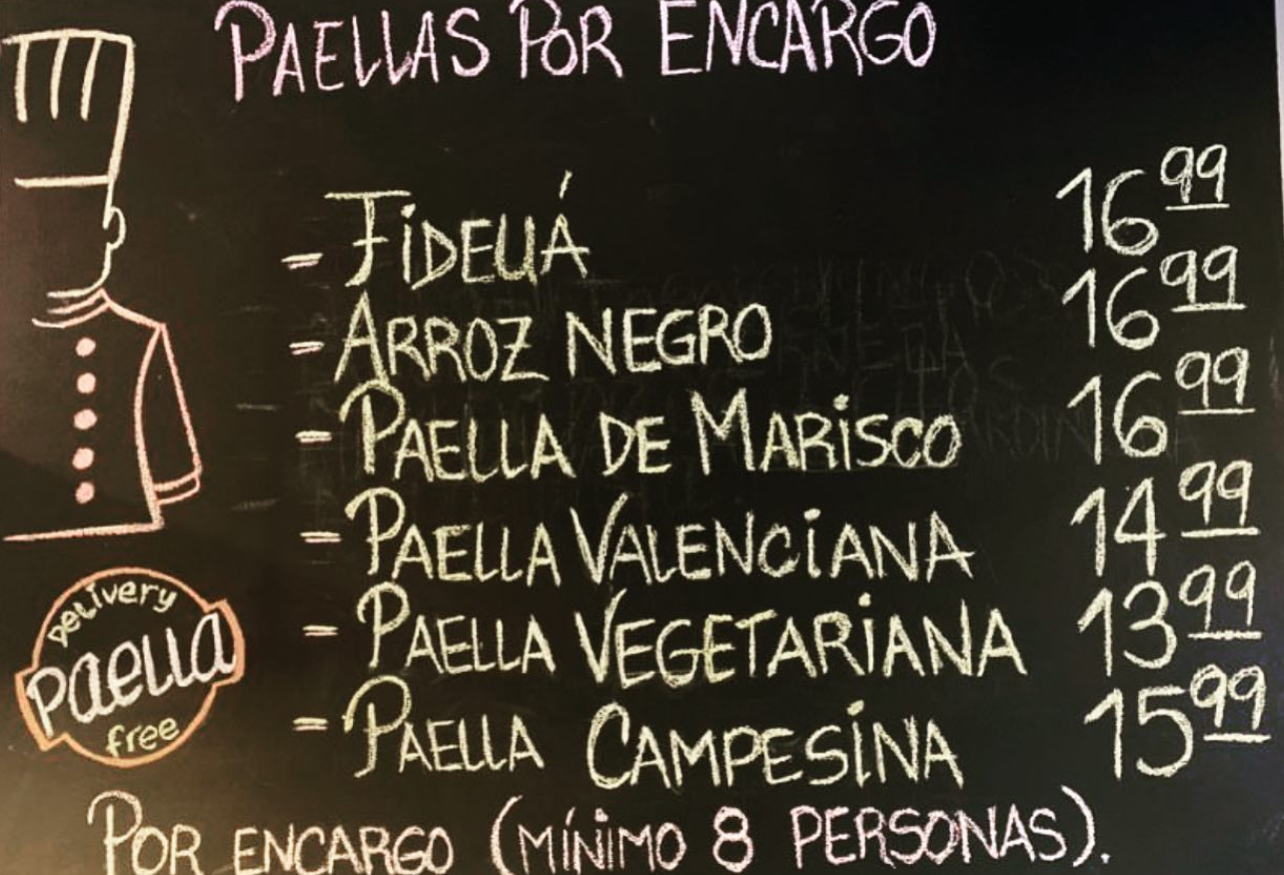 PAELLAS POR ENCARGO
= FIDEUÁ 16 99
= ARROZ NEGRO 16 99
= PAELLA DE MARISCO 16 99
= PAELLA VALENCIANA 14 99
= PAELLA VEGETARIANA 13 99
= PAELLA CAMPESINA 15 99
Delivery
Paella
free
POR ENCARGO (MÍNIMO 8 PERSONAS).